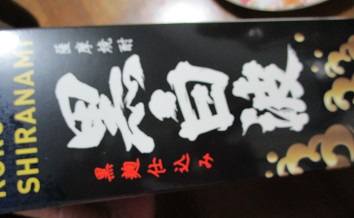 KURO
SHIRANAMI
薩摩焼酎
黒白波
黒麹仕込み